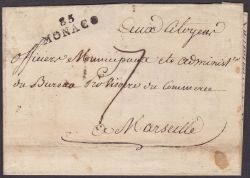 85
MONACO
Aux Citoyens
Officiers Municipaux et administ.
du Bureau Provisoire du Commerce
7
a Marseille